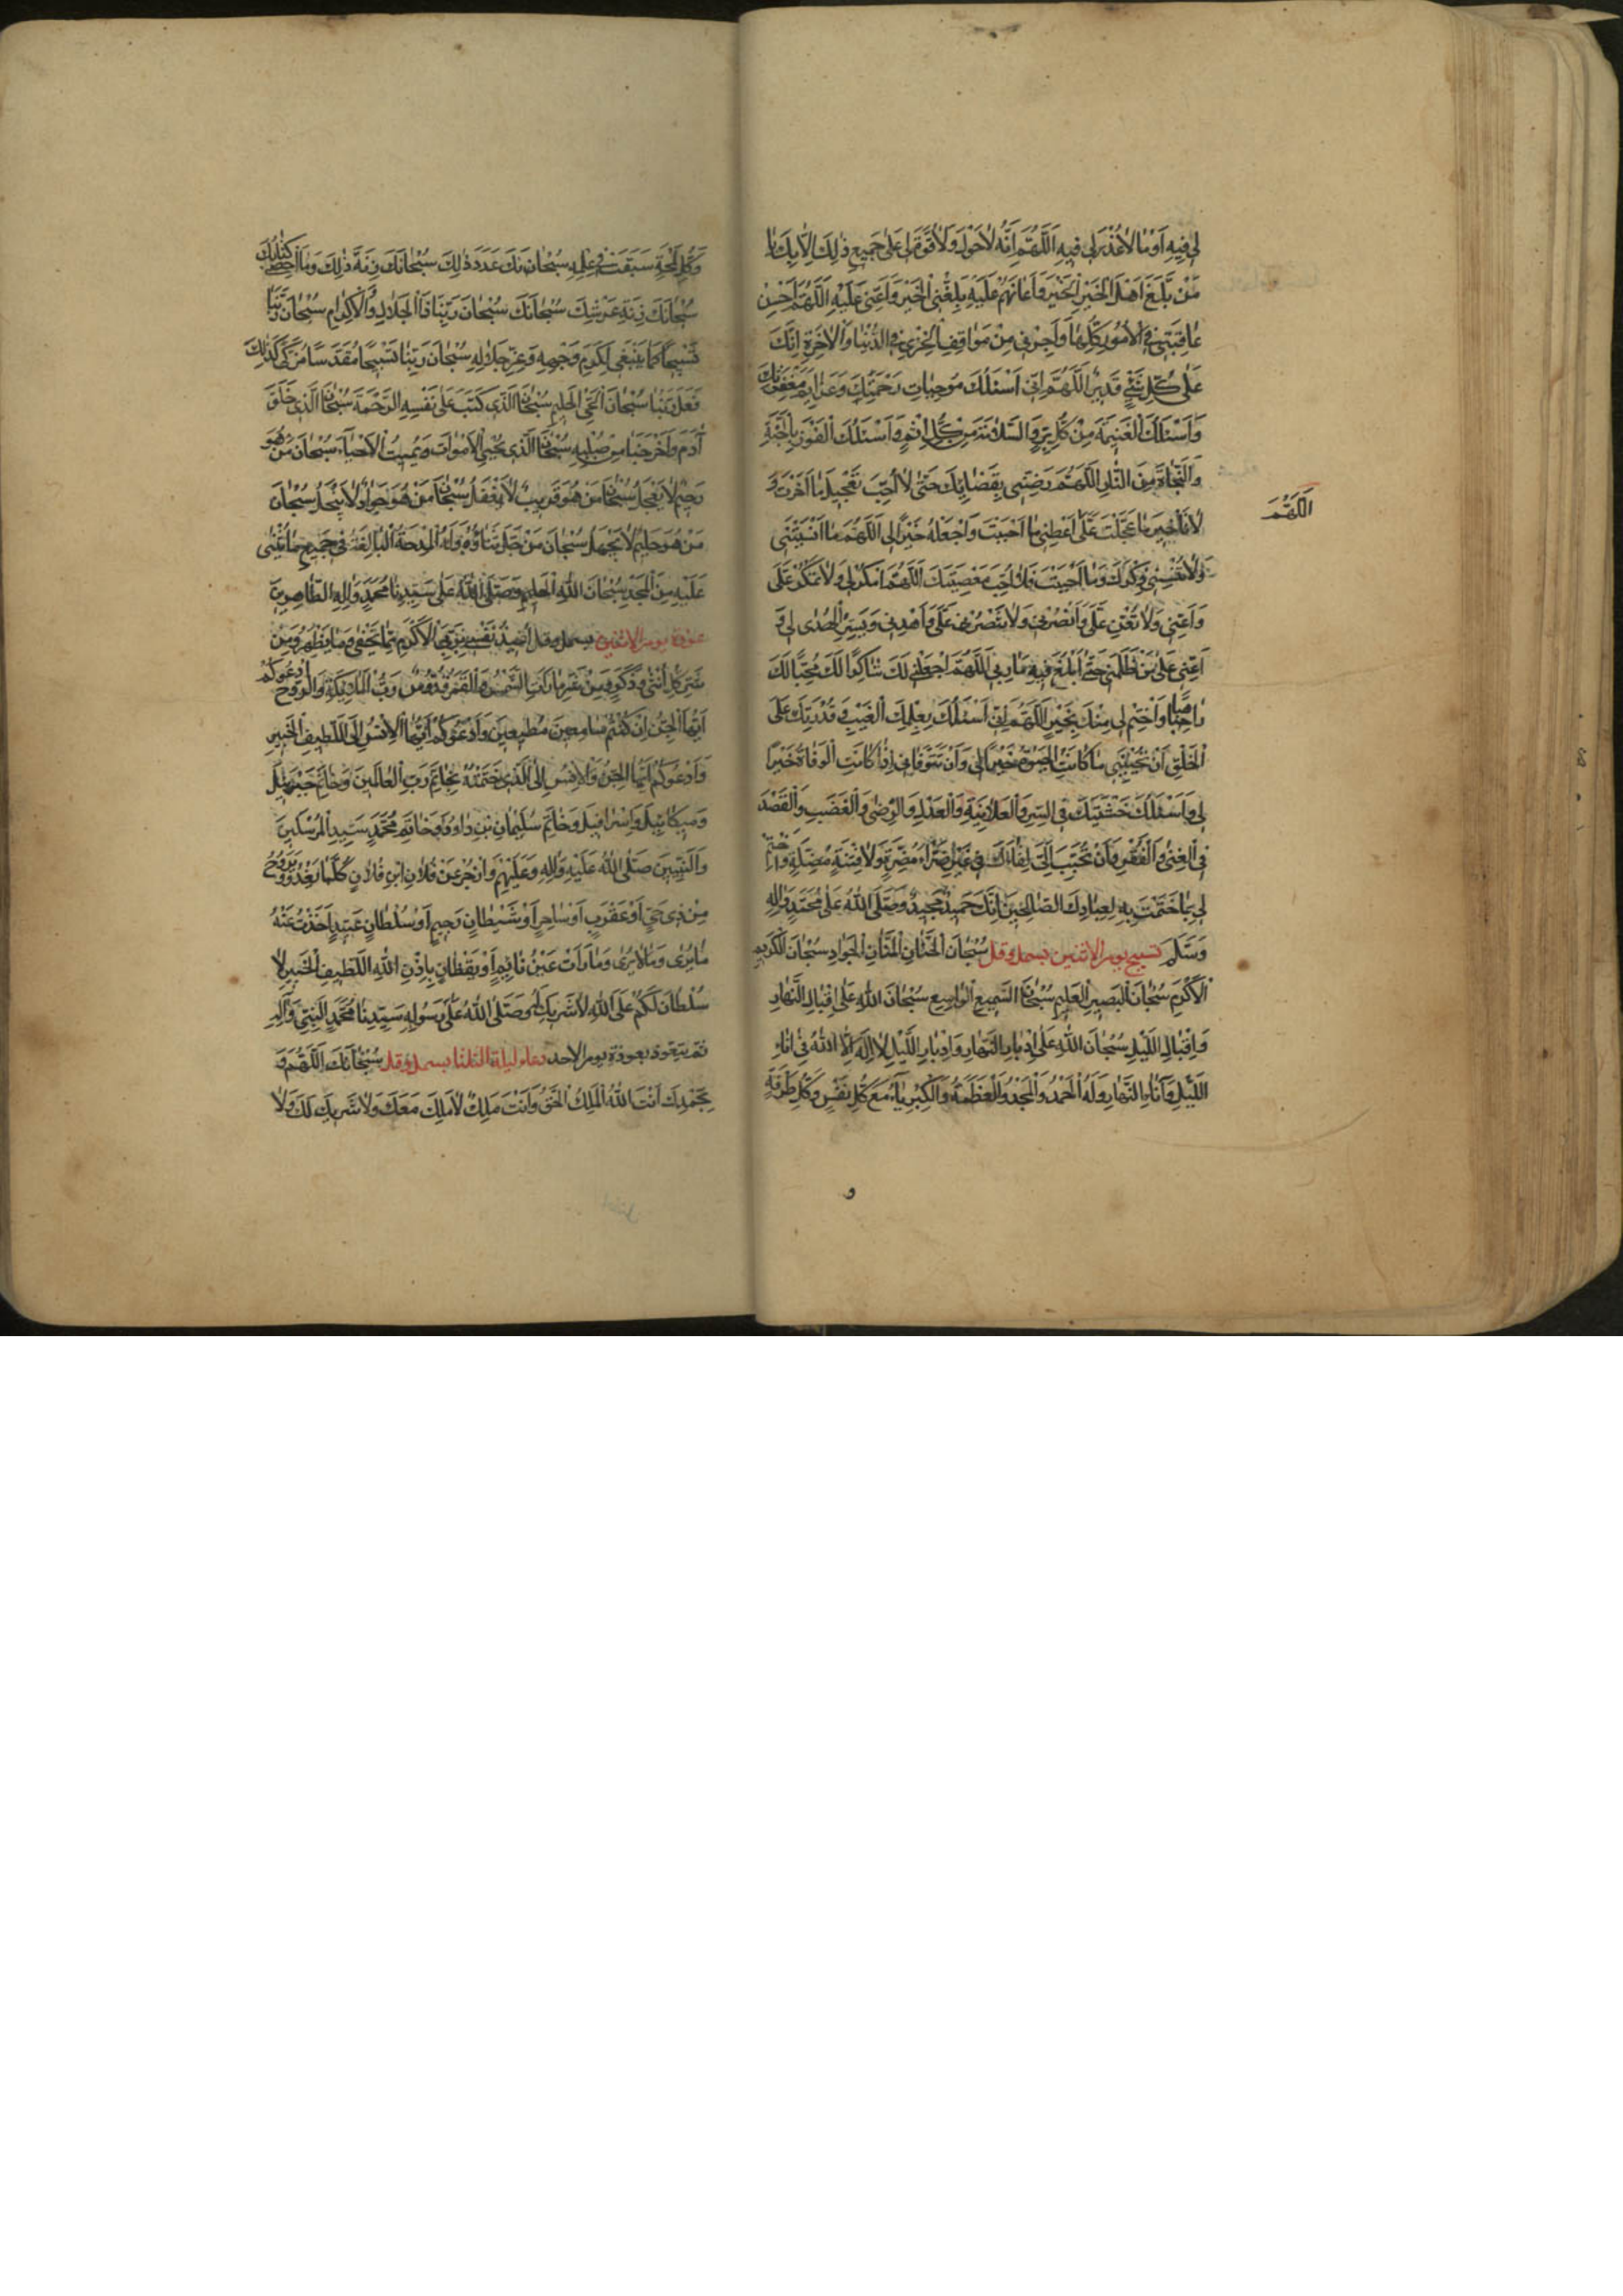 لي فيه اَوْ مٰا لاٰ عُذْرَ لي فيهِ اَللّٰهُمَّ اِنَّهُ لاٰ حَوْلَ وَلاٰ قُوَّةَ لي عَلىٰ جَميعِ ذٰلِكَ اِلاّٰ بِكَ يٰا
مَنْ بَلَّغَ اَهْلَ الْخَيْرِ الْخَيْرَ وَاَعٰانَهُمْ عَلَيْهِ بَلِّغْنِي الْخَيْرَ وَاَعِنّي عَلَيْهِ اَللّٰهُمَّ اَحْسِنْ
عٰاقِبَتي فِي الْاُمُورِ كُلِّهٰا وَاَجِرْني مِنْ مَوٰاقِفِ الْخِزْيِ فِي الدُّنْيٰا وَالْاٰخِرَةِ اِنَّكَ
عَلىٰ كُلِّ شَيْءٍ قَديرٌ اَللّٰهُمَّ اِنّي اَسْئَلُكَ مُوجِبٰاتِ رَحْمَتِكَ وَعَزٰائِمَ مَغْفِرَتِكَ
وَاَسْئَلُكَ الْغَنيمَةَ مِنْ كُلِّ بِرٍّ وَالسَّلاٰمَةَ مِنْ كُلِّ اِثْمٍ وَاَسْئَلُكَ الْفَوْزَ بِالْجَنَّةِ
وَالنَّجٰاةَ مِنَ النّٰارِ اَللّٰهُمَّ رَضِّني بِقَضٰائِكَ حَتّىٰ لاٰ اُحِبَّ تَعْجيلَ مٰا اَخَّرْتَ وَ
لاٰ تَأْخيرَ مٰا عَجَّلْتَ عَلَيَّ اَعْطِني مٰا اَحْبَبْتَ وَاجْعَلْهُ خَيْرًا لي اَللّٰهُمَّ مٰا اَنْسَيْتَني
اَللّٰهُمَّ
وَلاٰ تُنْسِني ذِكْرَكَ وَمٰا اَحْبَبْتَ فَلاٰ اُحِبُّ مَعْصِيَتَكَ اَللّٰهُمَّ امْكُرْ لي وَلاٰ تَمْكُرْ عَلَيَّ
وَاَعِنّي وَلاٰ تُعِنْ عَلَيَّ وَانْصُرْني وَلاٰ تَنْصُرْ عَلَيَّ وَاهْدِني وَيَسِّرِ الْهُدىٰ لي وَ
اَعِنّي عَلىٰ مَنْ ظَلَمَني حَتّىٰ اَبْلُغَ فيهِ مَاٰرِبي اَللّٰهُمَّ اجْعَلْني لَكَ شٰاكِرًا لَكَ مُحِبًّا لَكَ
رٰاهِبًا وَاخْتِمْ لي مِنْكَ بِخَيْرٍ اَللّٰهُمَّ اِنّي اَسْئَلُكَ بِعِلْمِكَ الْغَيْبَ وَقُدْرَتِكَ عَلَى
الْخَلْقِ اَنْ تُحْيِيَني مٰا كٰانَتِ الْحَيٰوةُ خَيْرًا لي وَاَنْ تَتَوَفّٰاني اِذٰا كٰانَتِ الْوَفٰاةُ خَيْرًا
لي وَاَسْئَلُكَ خَشْيَتَكَ فِي السِّرِّ وَالْعَلاٰنِيَةِ وَالْعَدْلَ فِي الرِّضىٰ وَالْغَضَبِ وَالْقَصْدَ
فِي الْغِنىٰ وَالْفَقْرِ وَاَنْ تُحَبِّبَ اِلَيَّ لِقٰاءَكَ في غَيْرِ ضَرّٰاءَ مُضِرَّةٍ وَلاٰ فِتْنَةٍ مُضِلَّةٍ وَاخْتِمْ
لي بِمٰا خَتَمْتَ بِهِ لِعِبٰادِكَ الصّٰالِحينَ اِنَّكَ حَميدٌ مَجيدٌ وَصَلَّى اللّٰهُ عَلىٰ مُحَمَّدٍ وَاٰلِهِ
وَسَلَّمَ تسبيح يوم الاثنين بسمل وقل سُبْحٰانَ الْحَنّٰانِ الْمَنّٰانِ الْجَوٰادِ سُبْحٰانَ الْكَريمِ
الْاَكْرَمِ سُبْحٰانَ الْبَصيرِ الْعَليمِ سُبْحٰانَ السَّميعِ الْوٰاسِعِ سُبْحٰانَ اللّٰهِ عَلىٰ اِقْبٰالِ النَّهٰارِ
وَاِقْبٰالِ اللَّيْلِ سُبْحٰانَ اللّٰهِ عَلىٰ اِدْبٰارِ النَّهٰارِ وَاِدْبٰارِ اللَّيْلِ لاٰ اِلٰهَ اِلاَّ اللّٰهُ في اٰنٰاءِ
اللَّيْلِ وَاٰنٰاءِ النَّهٰارِ وَلَهُ الْحَمْدُ وَالْمَجْدُ وَالْعَظَمَةُ وَالْكِبْرِيٰاءُ مَعَ كُلِّ نَفَسٍ وَكُلِّ طَرْفَةٍ
و
وَكُلِّ لَمْحَةٍ سَبَقَتْ في عِلْمِهِ سُبْحٰانَكَ عَدَدَ ذٰلِكَ سُبْحٰانَكَ زِنَةَ ذٰلِكَ وَمٰا اَحْصىٰ كِتٰابُكَ
سُبْحٰانَكَ زِنَةَ عَرْشِكَ سُبْحٰانَكَ سُبْحٰانَ رَبِّنٰا ذَا الْجَلاٰلِ وَالْاِكْرٰامِ سُبْحٰانَ رَبِّنٰا
تَسْبيحًا كَمٰا يَنْبَغي لِكَرَمِ وَجْهِهِ وَعِزِّ جَلاٰلِهِ سُبْحٰانَ رَبِّنٰا تَسْبيحًا مُقَدَّسًا مُزَكًّى كَذٰلِكَ
فَعَلَ رَبُّنٰا سُبْحٰانَ الْحَيِّ الْحَليمِ سُبْحٰانَ الَّذي كَتَبَ عَلىٰ نَفْسِهِ الرَّحْمَةَ سُبْحٰانَ الَّذي خَلَقَ
اٰدَمَ وَاَخْرَجَنٰا مِنْ صُلْبِهِ سُبْحٰانَ الَّذي يُحْيِي الْاَمْوٰاتَ وَيُميتُ الْاَحْيٰاءَ سُبْحٰانَ مَنْ هُوَ
رَحيمٌ لاٰ يَعْجَلُ سُبْحٰانَ مَنْ هُوَ قَريبٌ لاٰ يَغْفُلُ سُبْحٰانَ مَنْ هُوَ جَوٰادٌ لاٰ يَبْخَلُ سُبْحٰانَ
مَنْ هُوَ حَليمٌ لاٰ يَجْهَلُ سُبْحٰانَ مَنْ جَلَّ ثَنٰاؤُهُ وَلَهُ الْمِدْحَةُ الْبٰالِغَةُ في جَميعِ مٰا يُثْنىٰ
عَلَيْهِ مِنَ الْمَجْدِ سُبْحٰانَ اللّٰهِ الْحَليمِ وَصَلَّى اللّٰهُ عَلىٰ سَيِّدِنٰا مُحَمَّدٍ وَاٰلِهِ الطّٰاهِرينَ
عوذة يوم الاثنين بسمل وقل اُعيذُ نَفْسي بِرَبِّيَ الْاَكْرَمِ مِمّٰا يَخْفىٰ وَمٰا يَظْهَرُ وَمِنْ
شَرِّ كُلِّ اُنْثىٰ وَذَكَرٍ وَمِنْ شَرِّ مٰا رَأَتِ الشَّمْسُ وَالْقَمَرُ قُدُّوسٌ رَبُّ الْمَلاٰئِكَةِ وَالرُّوحِ اَدْعُوكُمْ
اَيُّهَا الْجِنُّ اِنْ كُنْتُمْ سٰامِعينَ مُطيعينَ وَاَدْعُوكُمْ اَيُّهَا الْاِنْسُ اِلَى اللَّطيفِ الْخَبيرِ
وَاَدْعُوكُمْ اَيُّهَا الْجِنُّ وَالْاِنْسُ اِلَى الَّذي خَتَمْتُهُ بِخٰاتَمِ رَبِّ الْعٰالَمينَ وَخٰاتَمِ جَبْرَئيلَ
وَميكٰائيلَ وَاِسْرٰافيلَ وَخٰاتَمِ سُلَيْمٰانَ بْنِ دٰاوُدَ وَخٰاتَمِ مُحَمَّدٍ سَيِّدِ الْمُرْسَلينَ
وَالنَّبِيّينَ صَلَّى اللّٰهُ عَلَيْهِ وَاٰلِهِ وَعَلَيْهِمْ وَازْجُرْ عَنْ فُلاٰنِ ابْنِ فُلاٰنٍ كُلَّمٰا يَغْدُو وَيَرُوحُ
مِنْ ذي حَيٍّ اَوْ عَقْرَبٍ اَوْ سٰاحِرٍ اَوْ شَيْطٰانٍ رَجيمٍ اَوْ سُلْطٰانٍ عَنيدٍ اَخَذْتُ عَنْهُ
مٰا يُرىٰ وَمٰا لاٰ يُرىٰ وَمٰا رَأَتْ عَيْنُ نٰائِمٍ اَوْ يَقْظٰانٍ بِاِذْنِ اللّٰهِ اللَّطيفِ الْخَبيرِ لاٰ
سُلْطٰانَ لَكُمْ عَلَى اللّٰهِ لاٰ شَريكَ لَهُ وَصَلَّى اللّٰهُ عَلىٰ رَسُولِهِ سَيِّدِنٰا مُحَمَّدٍ النَّبِيِّ وَاٰلِهِ
ثم يتعوذ بعوذة يوم الاحد دعاء ليلة الثلثا بسمل وقل سُبْحٰانَكَ اَللّٰهُمَّ وَ
بِحَمْدِكَ اَنْتَ اللّٰهُ الْمَلِكُ الْحَقُّ وَاَنْتَ مَلِكٌ لاٰ مَلِكَ مَعَكَ وَلاٰ شَريكَ لَكَ وَلاٰ